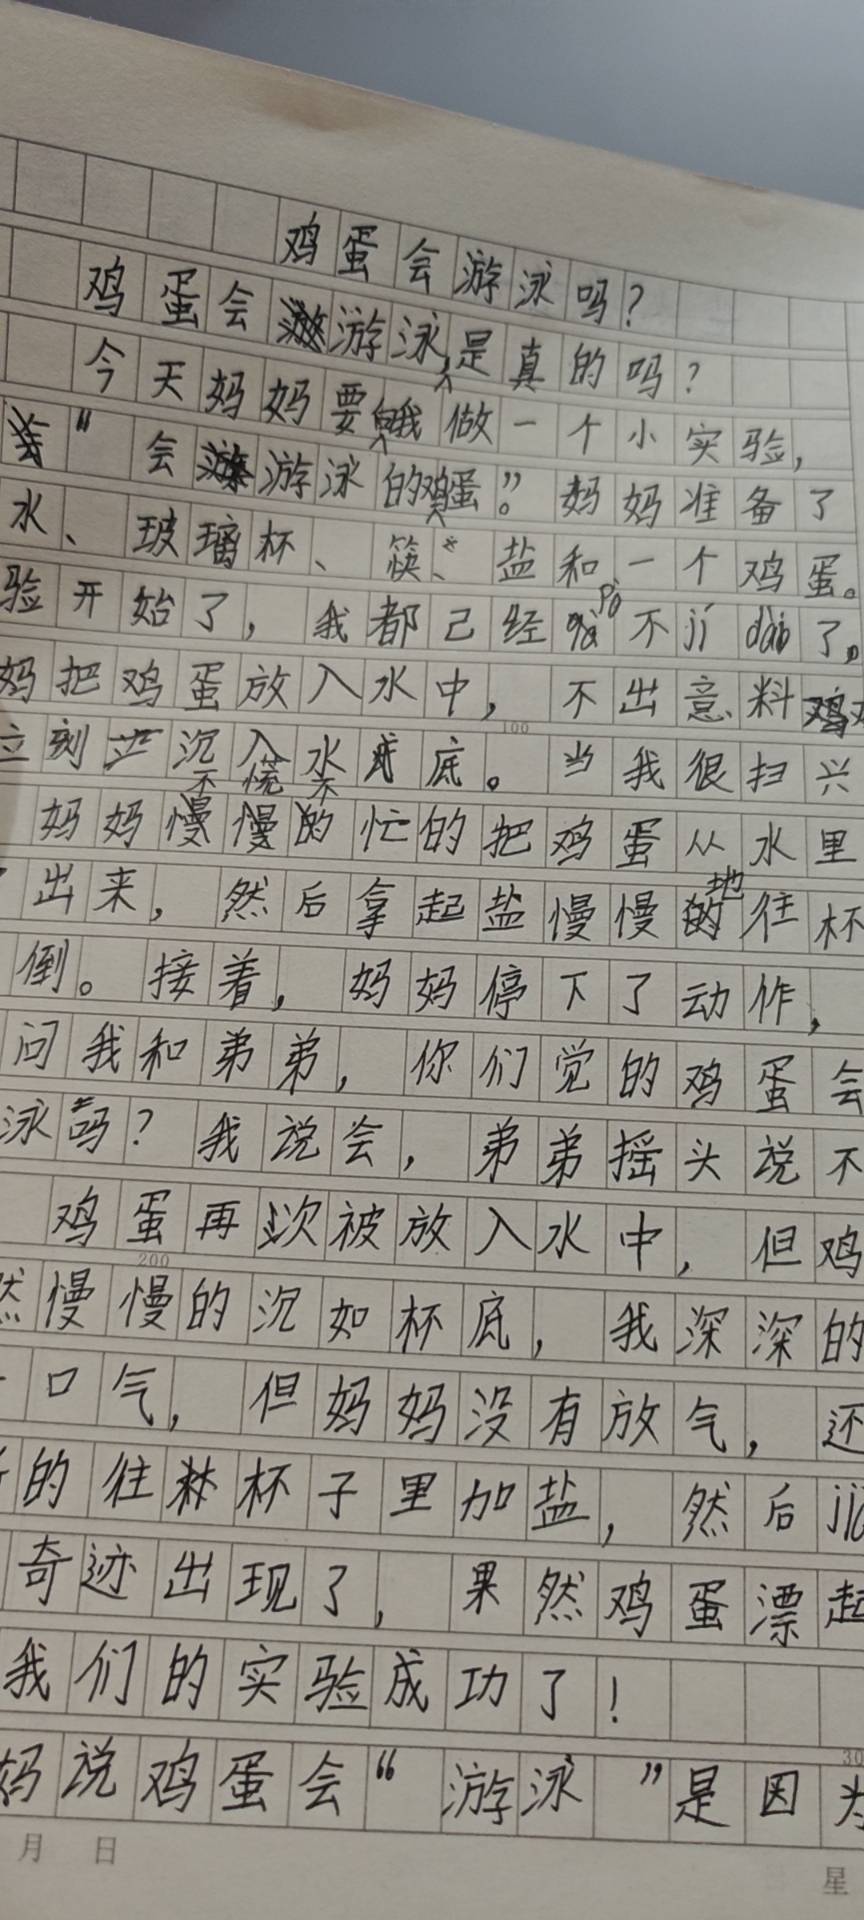 鸡蛋会游泳吗？
鸡蛋会游泳，是真的吗？
今天妈妈要和我做一个小实验，
“会游泳的鸡蛋”。妈妈准备了
水、玻璃杯、筷、盐和一个鸡蛋。
验开始了，我都己经pò不jí dài了，
妈把鸡蛋放入水中，不出意料鸡
立刻沉入水底。当我很扫兴
妈妈不慌不忙的把鸡蛋从水里
出来，然后拿起盐慢慢地往杯
倒。接着，妈妈停下了动作，
问我和弟弟，你们觉的鸡蛋会
泳吗？我说会，弟弟摇头说不
鸡蛋再次被放入水中，但鸡
然慢慢的沉如杯底，我深深的
一口气，但妈妈没有放气，还
的往杯子里加盐，然后
奇迹出现了，果然鸡蛋漂起
我们的实验成功了！
妈说鸡蛋会“游泳”是因为
100
200
30
月 日
星